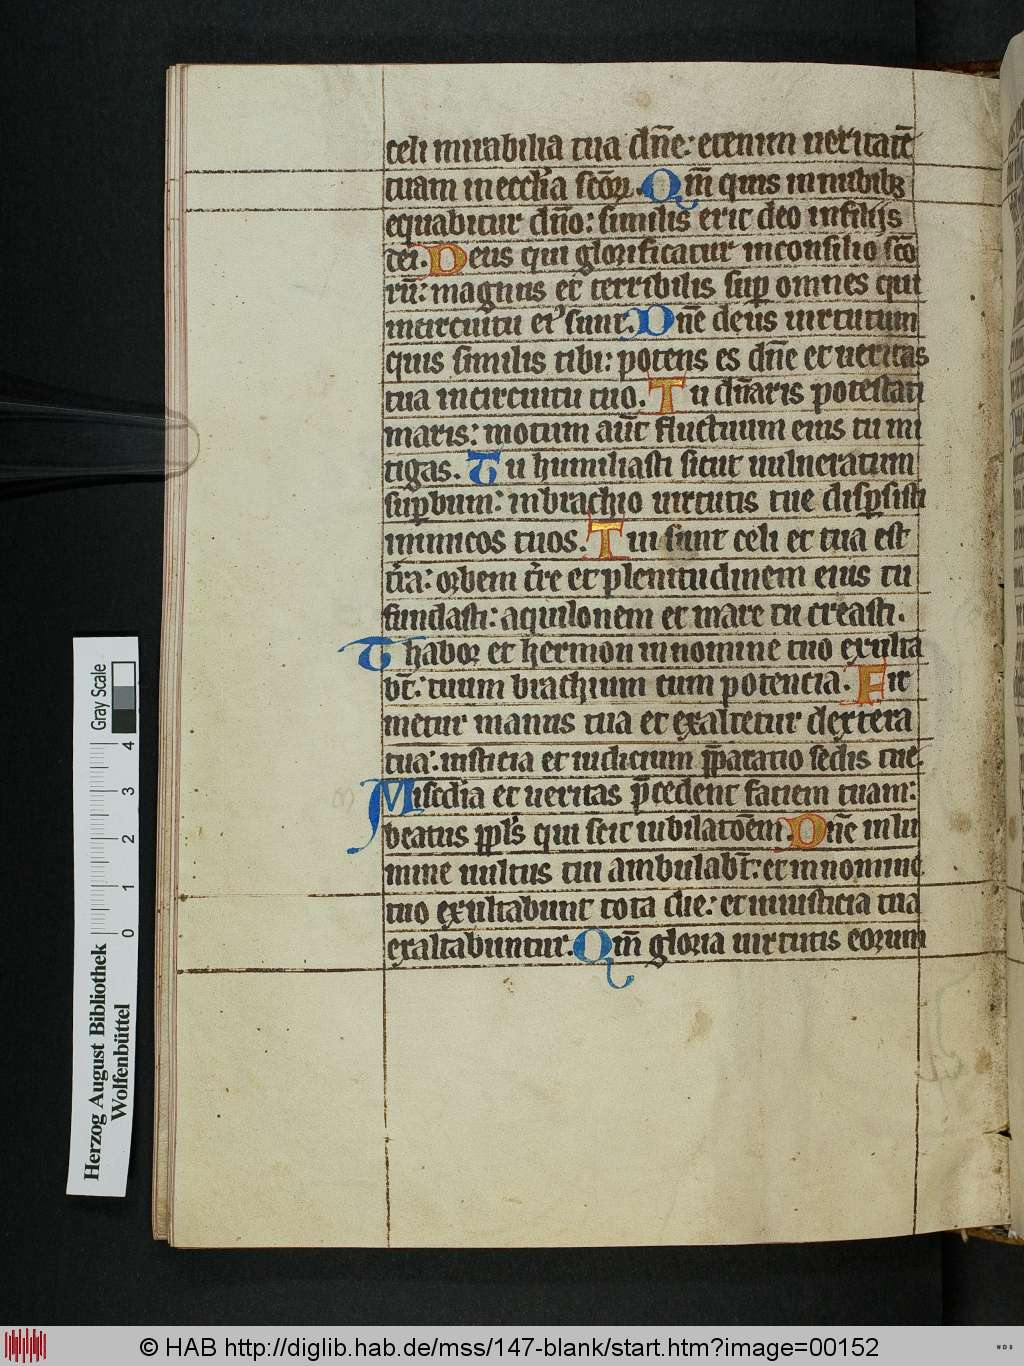 celi mirabilia tua dn̄e: etenim ueritatē
tuam in eccłia sc̄oꝝ. Qm̄ quis in nubibꝫ
equabitur dn̄o: similis erit deo in filijs
dei. Deus qui glorificatur in consilio sc̄o
rū: magnus et terribilis suꝑ omnes qui
in circuitu ei᾽ sunt. Dn̄e deus uirtutum
quis similis tibi: potens es dn̄e et ueritas
tua in circuitu tuo. Tu dn̄aris potestati
maris: motum aūt fluctuum eius tu mi
tigas. Tu humiliasti sicut uulneratum
suꝑbum: in brachio uirtutis tue disꝑsisti
inimicos tuos. Tui sunt celi et tua est
t̄ra: orbem t̄re et plenitudinem eius tu
fundasti: aquilonem et mare tu creasti.
Thabor et hermon in nomine tuo exulta
bt̄: tuum brachium cum potencia. Fir
metur manus tua et exaltetur dextera
tua: iusticia et iudicium p̄paratio sedis tue.
Misc̄dia et ueritas p̄cedent faciem tuam:
beatus ppl̄s qui scit iubilatōem. Dn̄e in lu
mine uultus tui ambulabt̄: et in nomine
tuo exultabunt tota die: et in iusticia tua
exaltabuntur. Qm̄ gloria uirtutis eorum
Gray Scale
4
3
2
1
0
Herzog August Bibliothek
Wolfenbüttel
© HAB http://diglib.hab.de/mss/147-blank/start.htm?image=00152